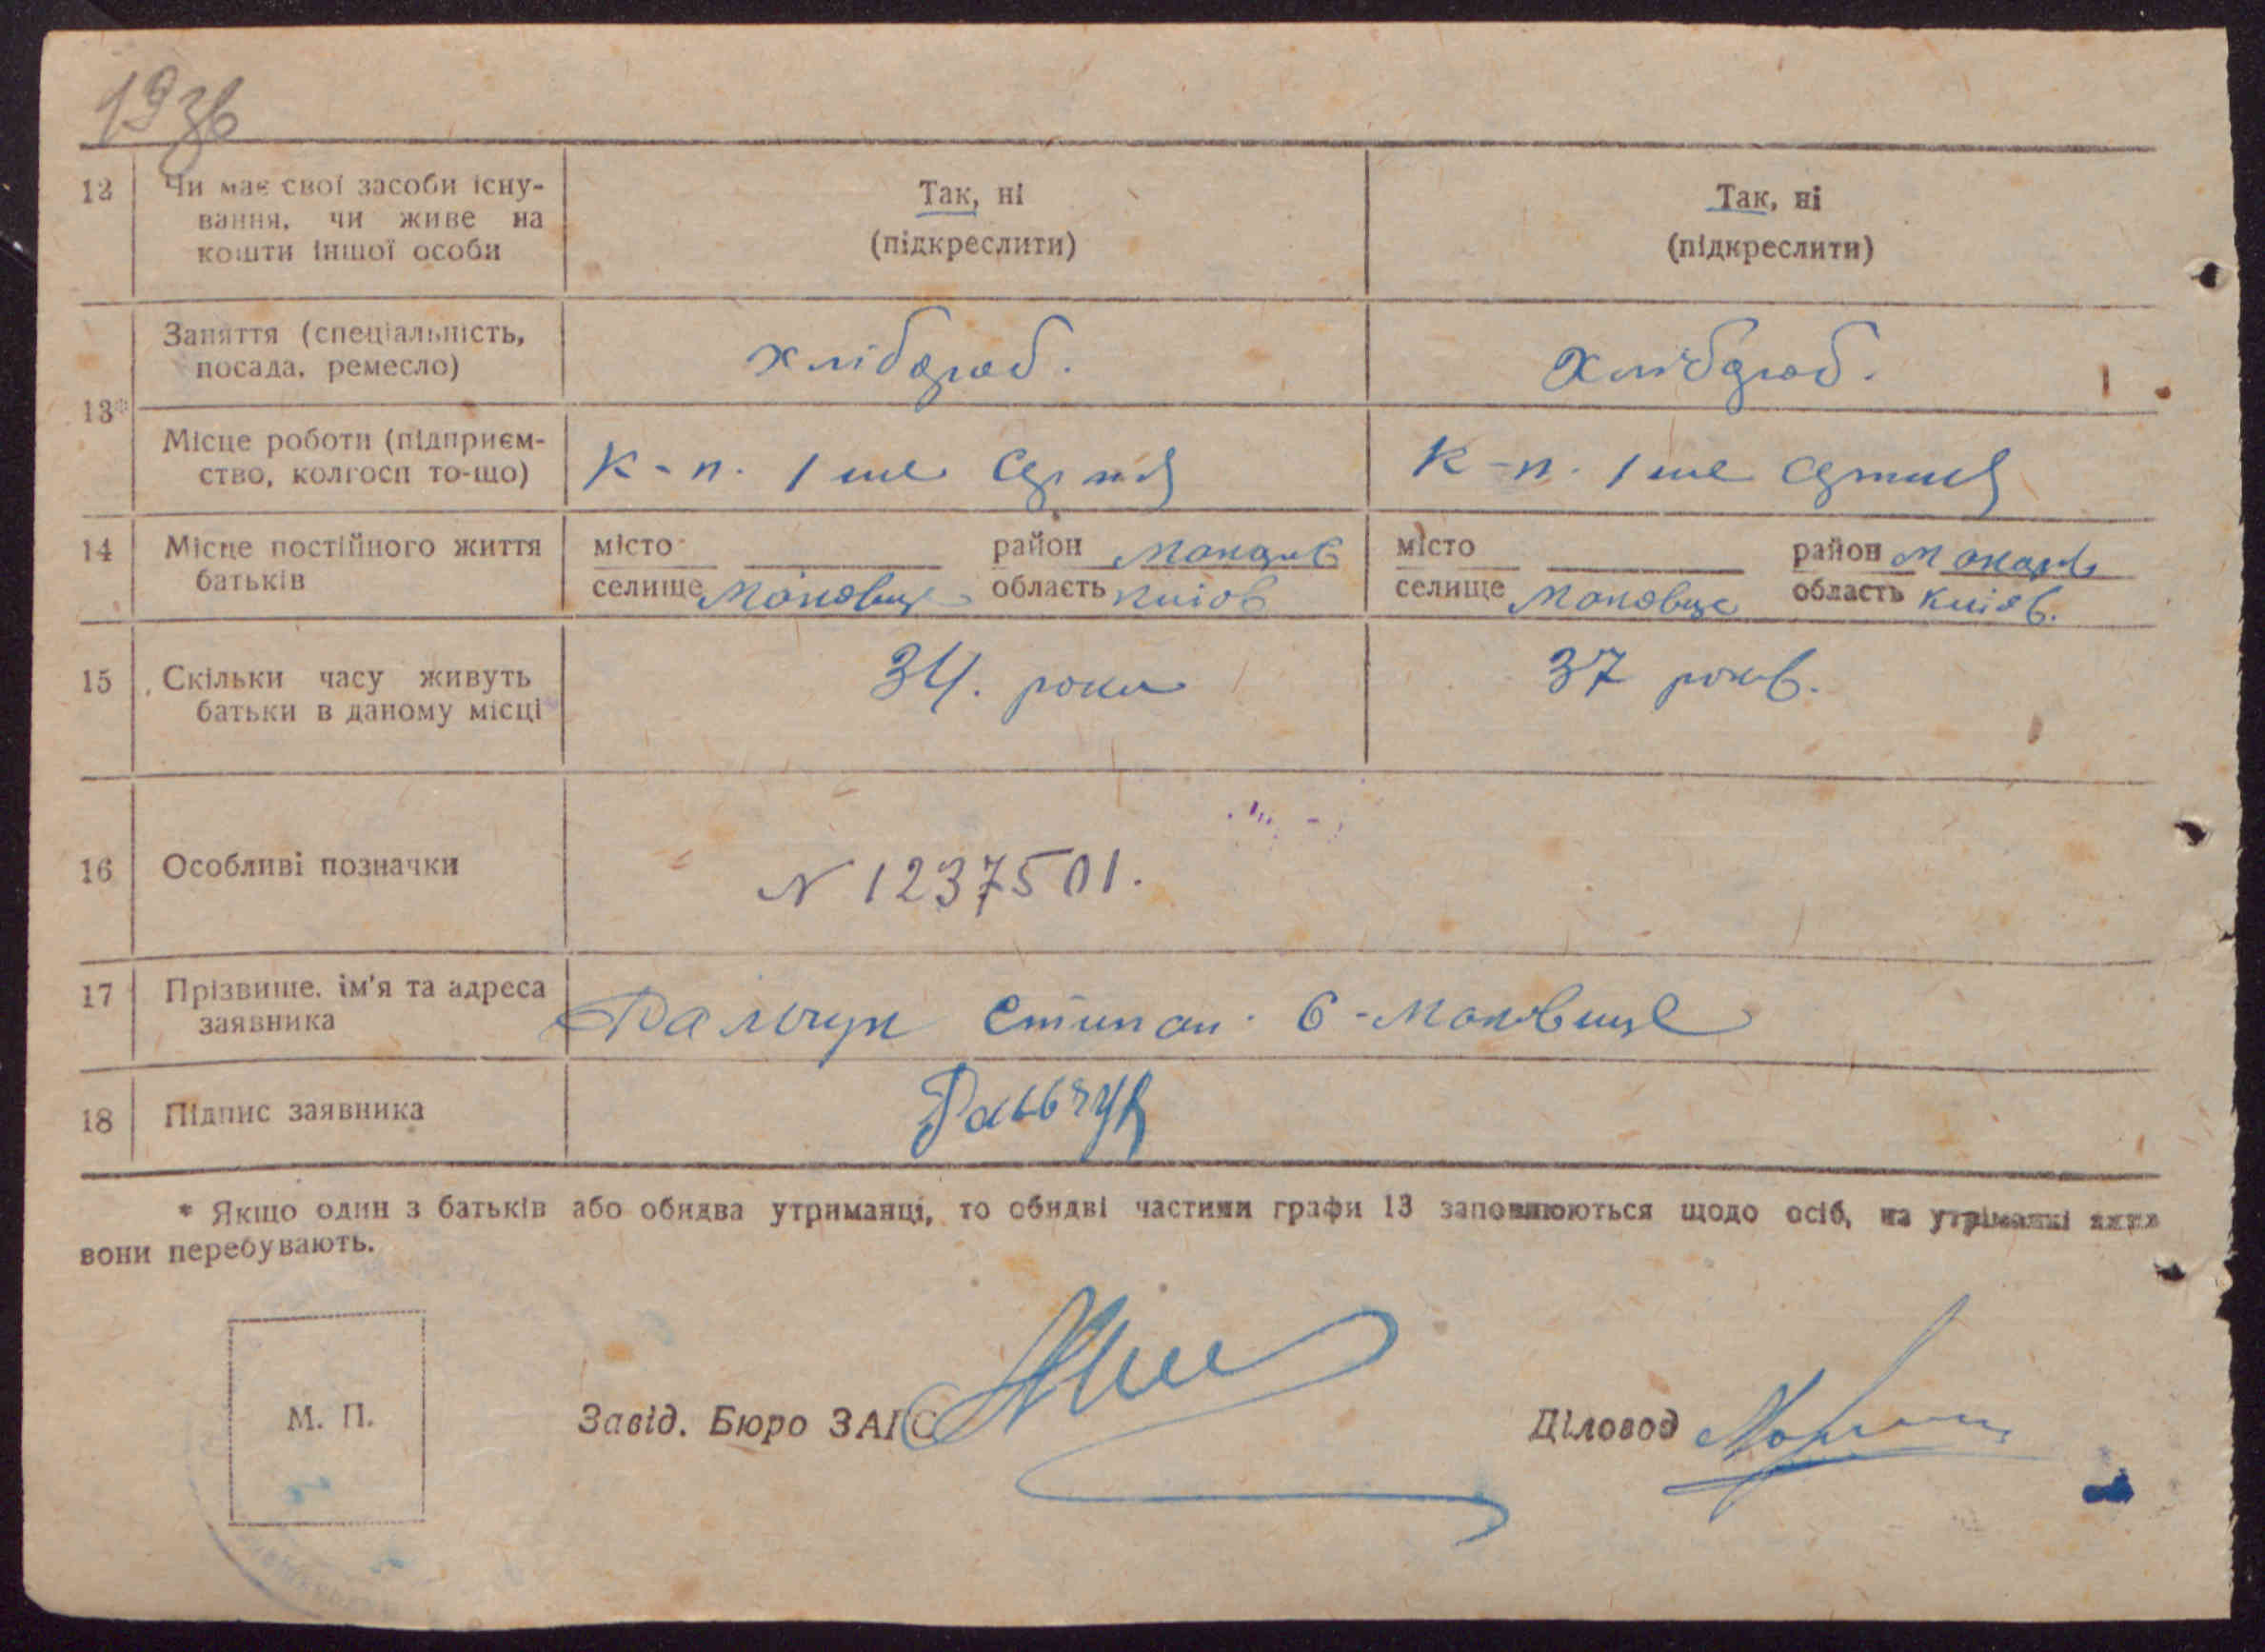 1936
12 Чи має свої засоби існу- Так, ні Так, ні
вання, чи живе на
кошти іншої особи (підкреслити) (підкреслити)
Заняття (спеціальність,
посада, ремесло) хлібороб. хлібороб.
13*
Місце роботи (підприєм-
ство, колгосп то-що) К-п. 1 ше Серпня К-п. 1 ше Серпня
14 Місце постійного життя місто район Макарів місто район Макарів
батьків селище Маковище область київ селище Маковище область київ.
15 Скільки часу живуть 34. роки 37 років.
батьки в даному місці
16 Особливі позначки N 1237501.
17 Прізвище, ім'я та адреса
заявника Ральчук Стипан. с-Маковище
18 Підпис заявника Ральчук
* Якщо один з батьків або обидва утриманці, то обидві частини графи 13 заповнюються щодо осіб, на утриманні яких
вони перебувають.
М. П. Завід. Бюро ЗАГС Діловод